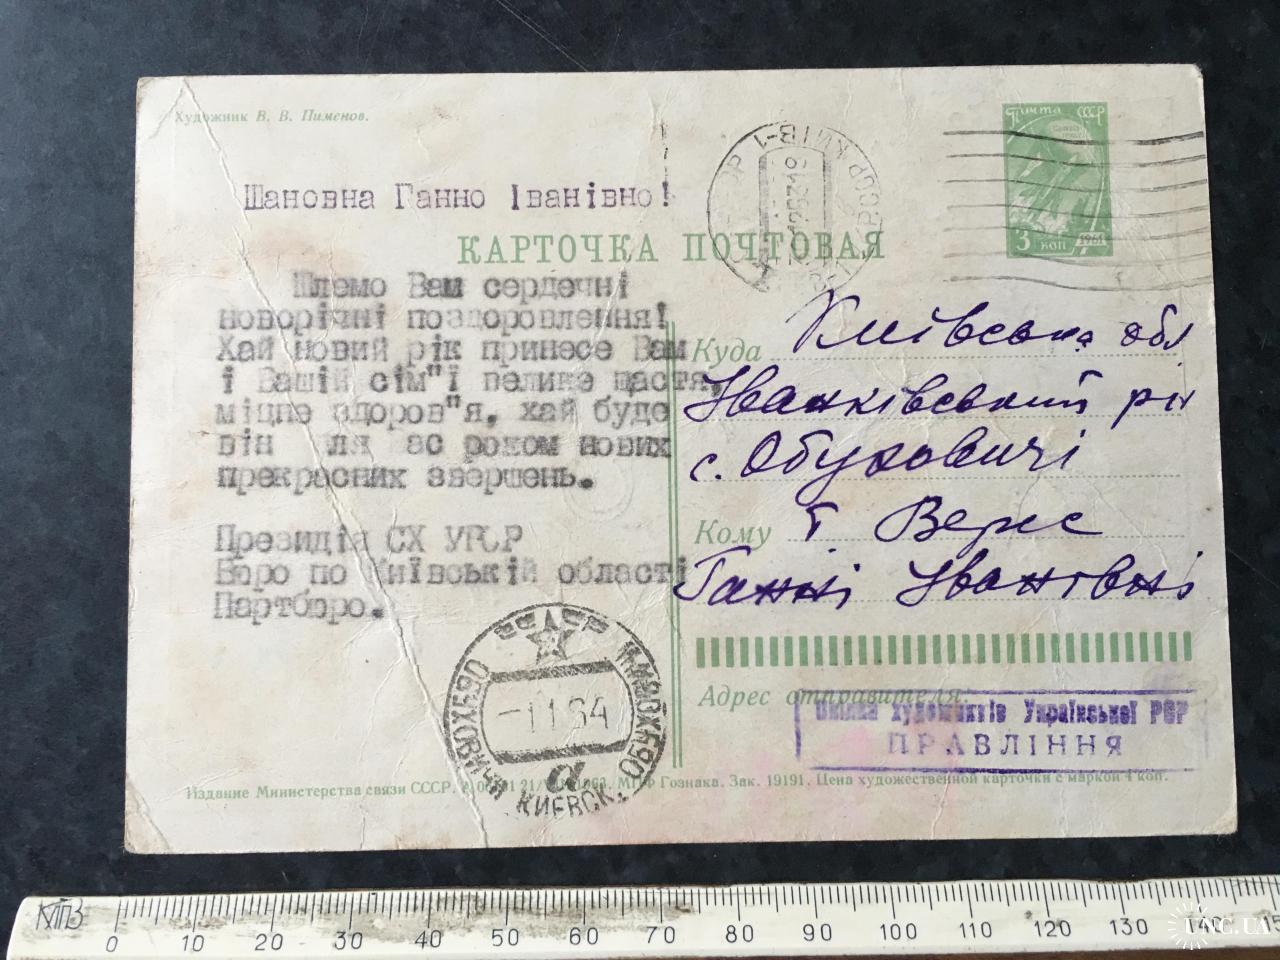 Художник В. В. Пименов.
Почта СССР
3 коп 1961
Шановна Ганно Іванівно!
КАРТОЧКА ПОЧТОВАЯ
Шлемо Вам сердечні
новорічні поздоровлення!
Хай новий рік принесе Вам
і Вашій сім"ї велике щастя,
міцне здоров"я, хай буде
він ля ас роком нових
прекрасних звершень.
Президія СХ УРСР
Бюро по Київській області
Партбюро.
Куда Київська обл
Іванківський р-н
с. Обуховичі
Кому т. Верес
Ганні Іванівні
Адрес отправителя:
Спілка художників Української РСР
ПРАВЛІННЯ
СССР
-1 1 64
а
КИЕВСК.
Издание Министерства связи СССР. 1963. МПФ Гознака. Зак. 19191. Цена художественной карточки с маркой 4 коп.
0 10 20 30 40 50 60 70 80 90 100 110 120 130 140 15
UNC.UA